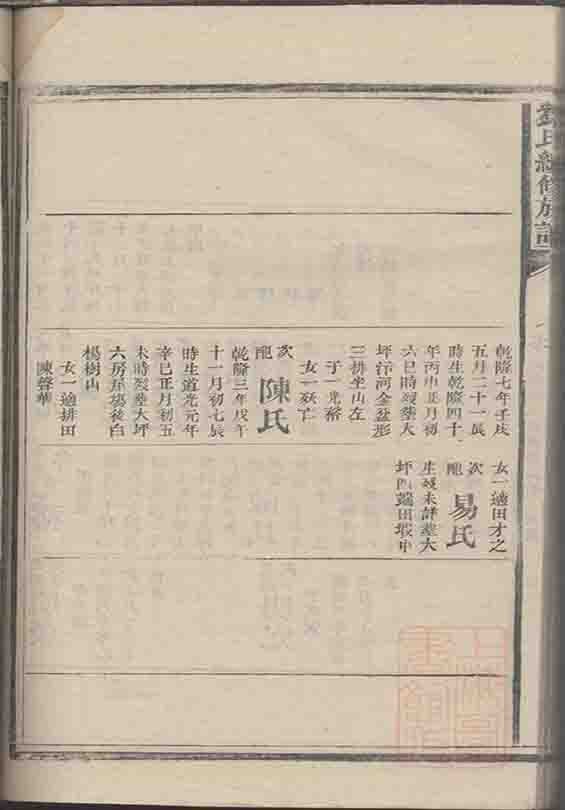 氏續修族譜
乾隆七年壬戌
五月二十一辰
時生乾隆四十一
年丙申正月初
六巳時歿葬大
坪汙河金盆形
三排坐山左
子一光裕
女一歿亡
次配陳氏
乾隆三年戊午
十一月初七辰
時生道光元年
辛巳正月初五
未時歿葬大坪
六房屋場後白
楊樹山
女一適排田
陳聲華
女一適田才之
次配易氏
生歿未詳葬大
坪西端田塅中